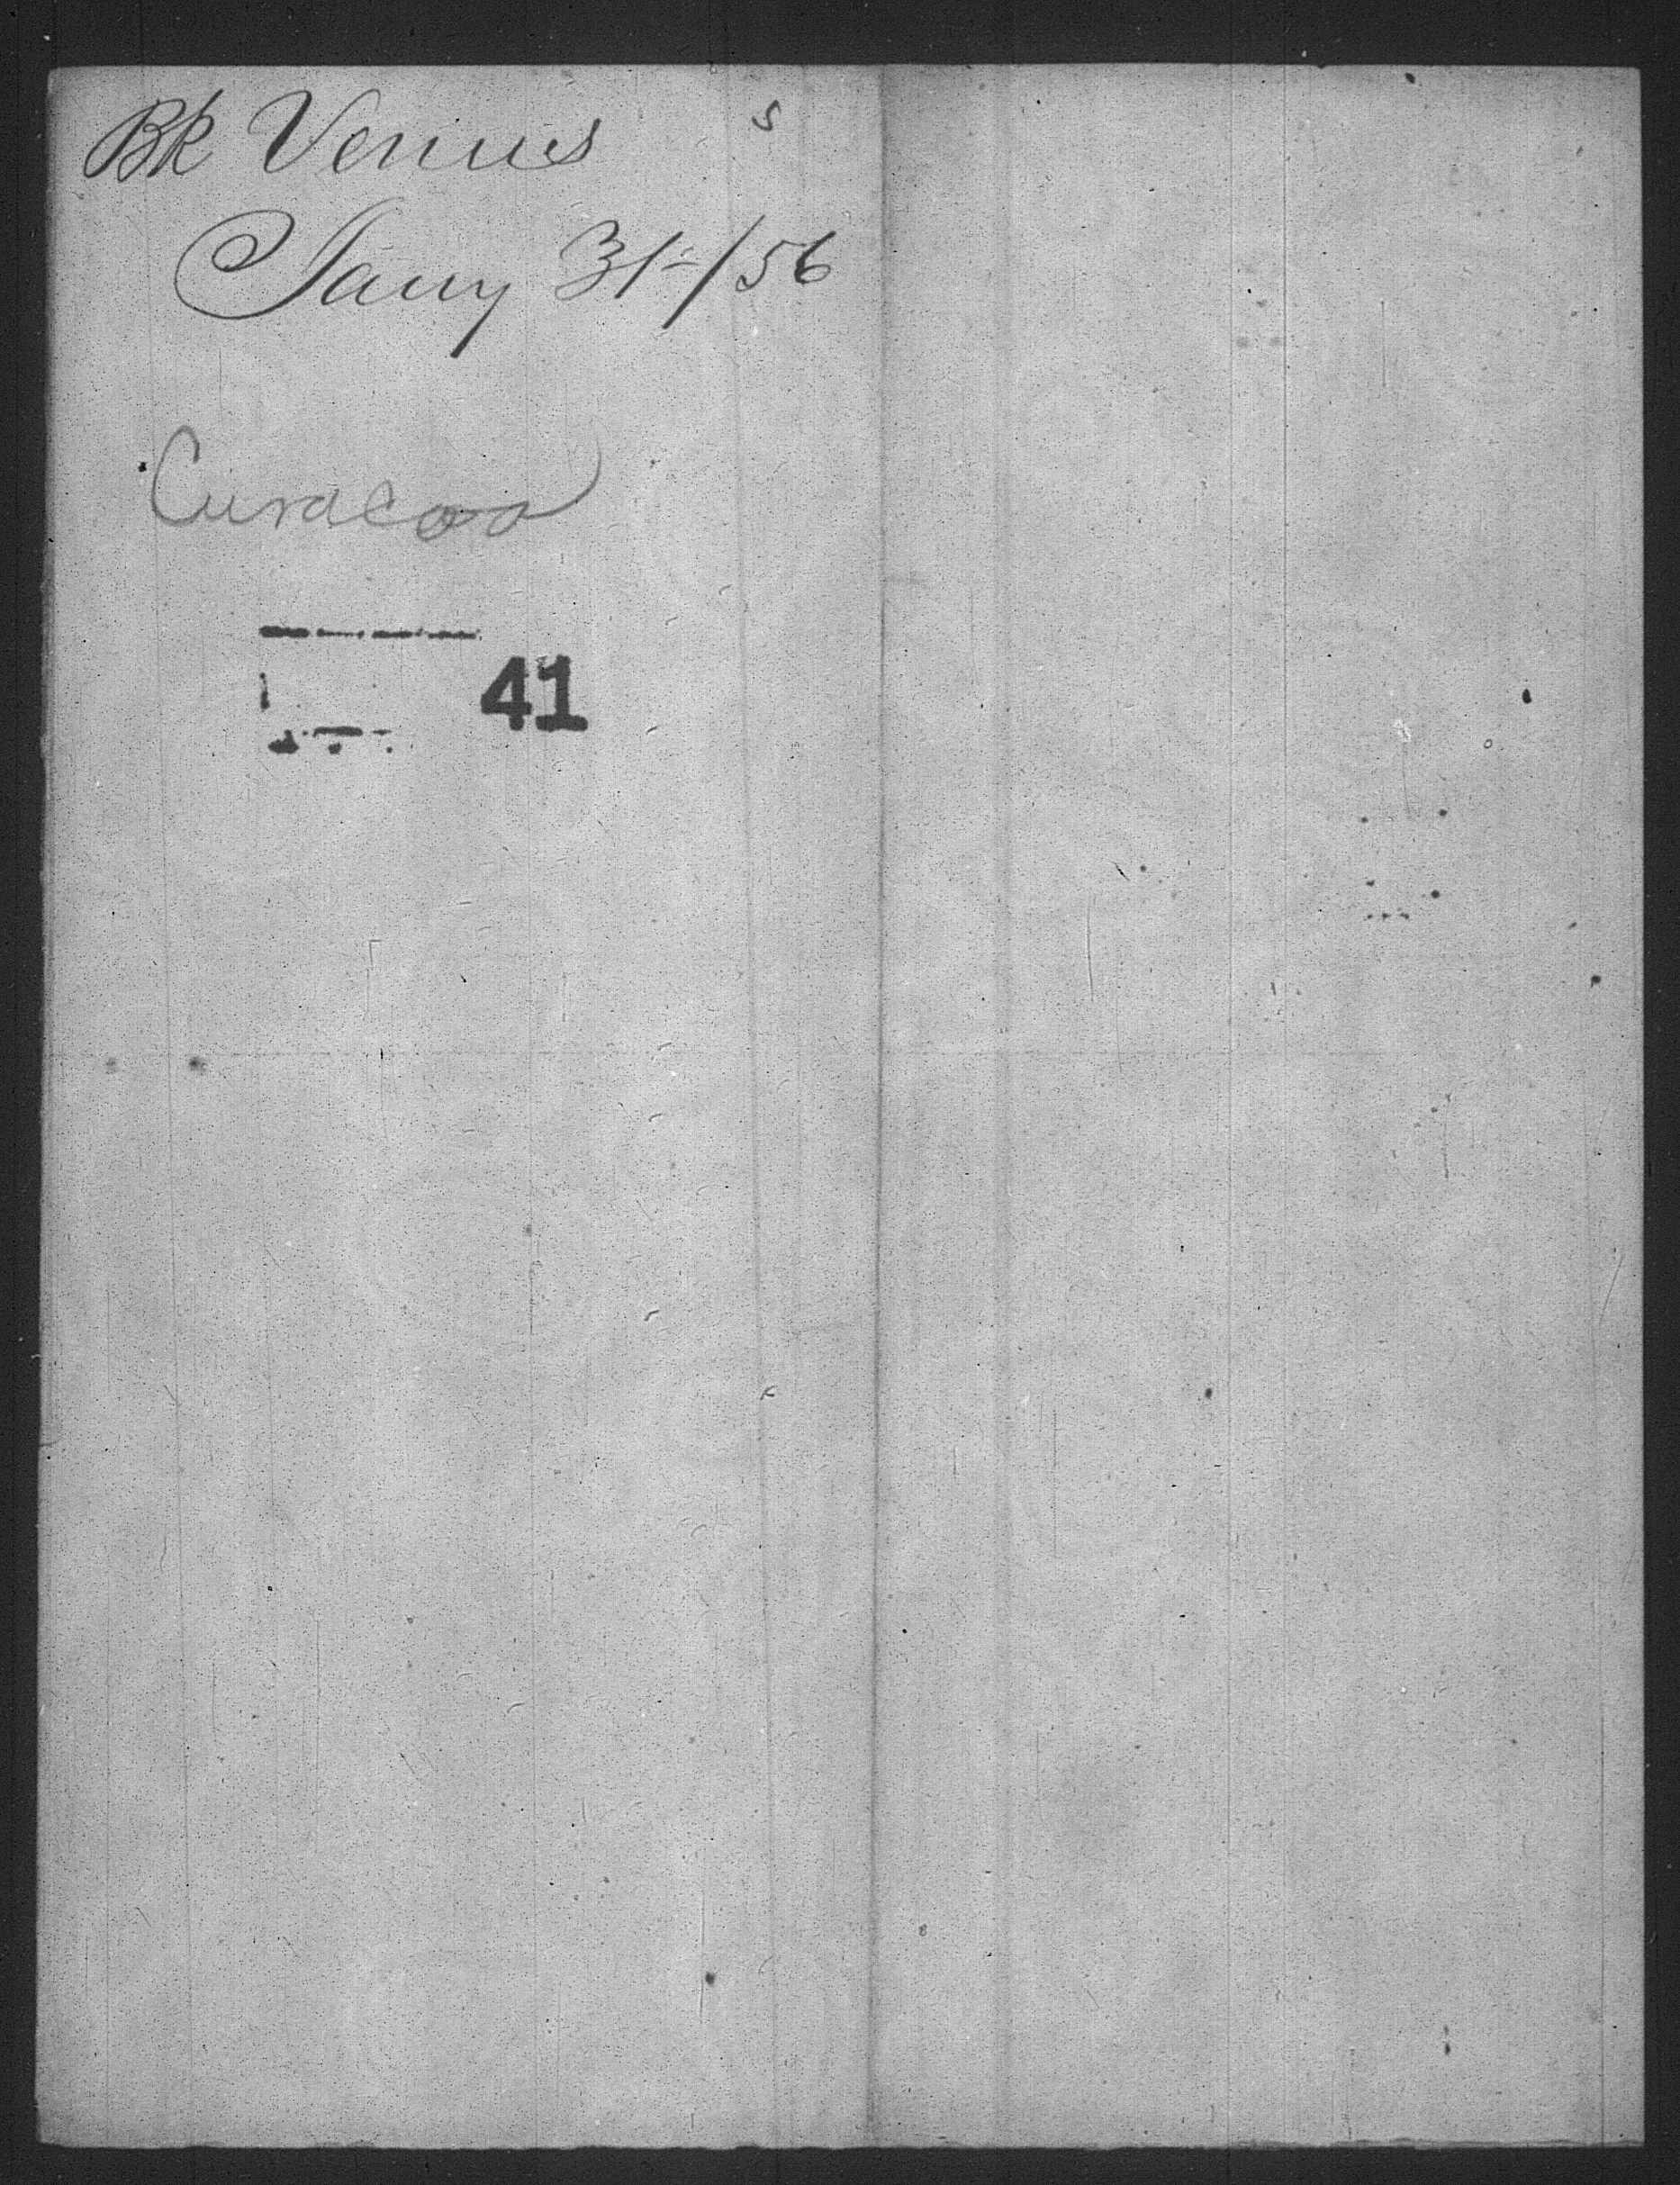 Bk Venus
Jany 31-/56
Curacoa
41